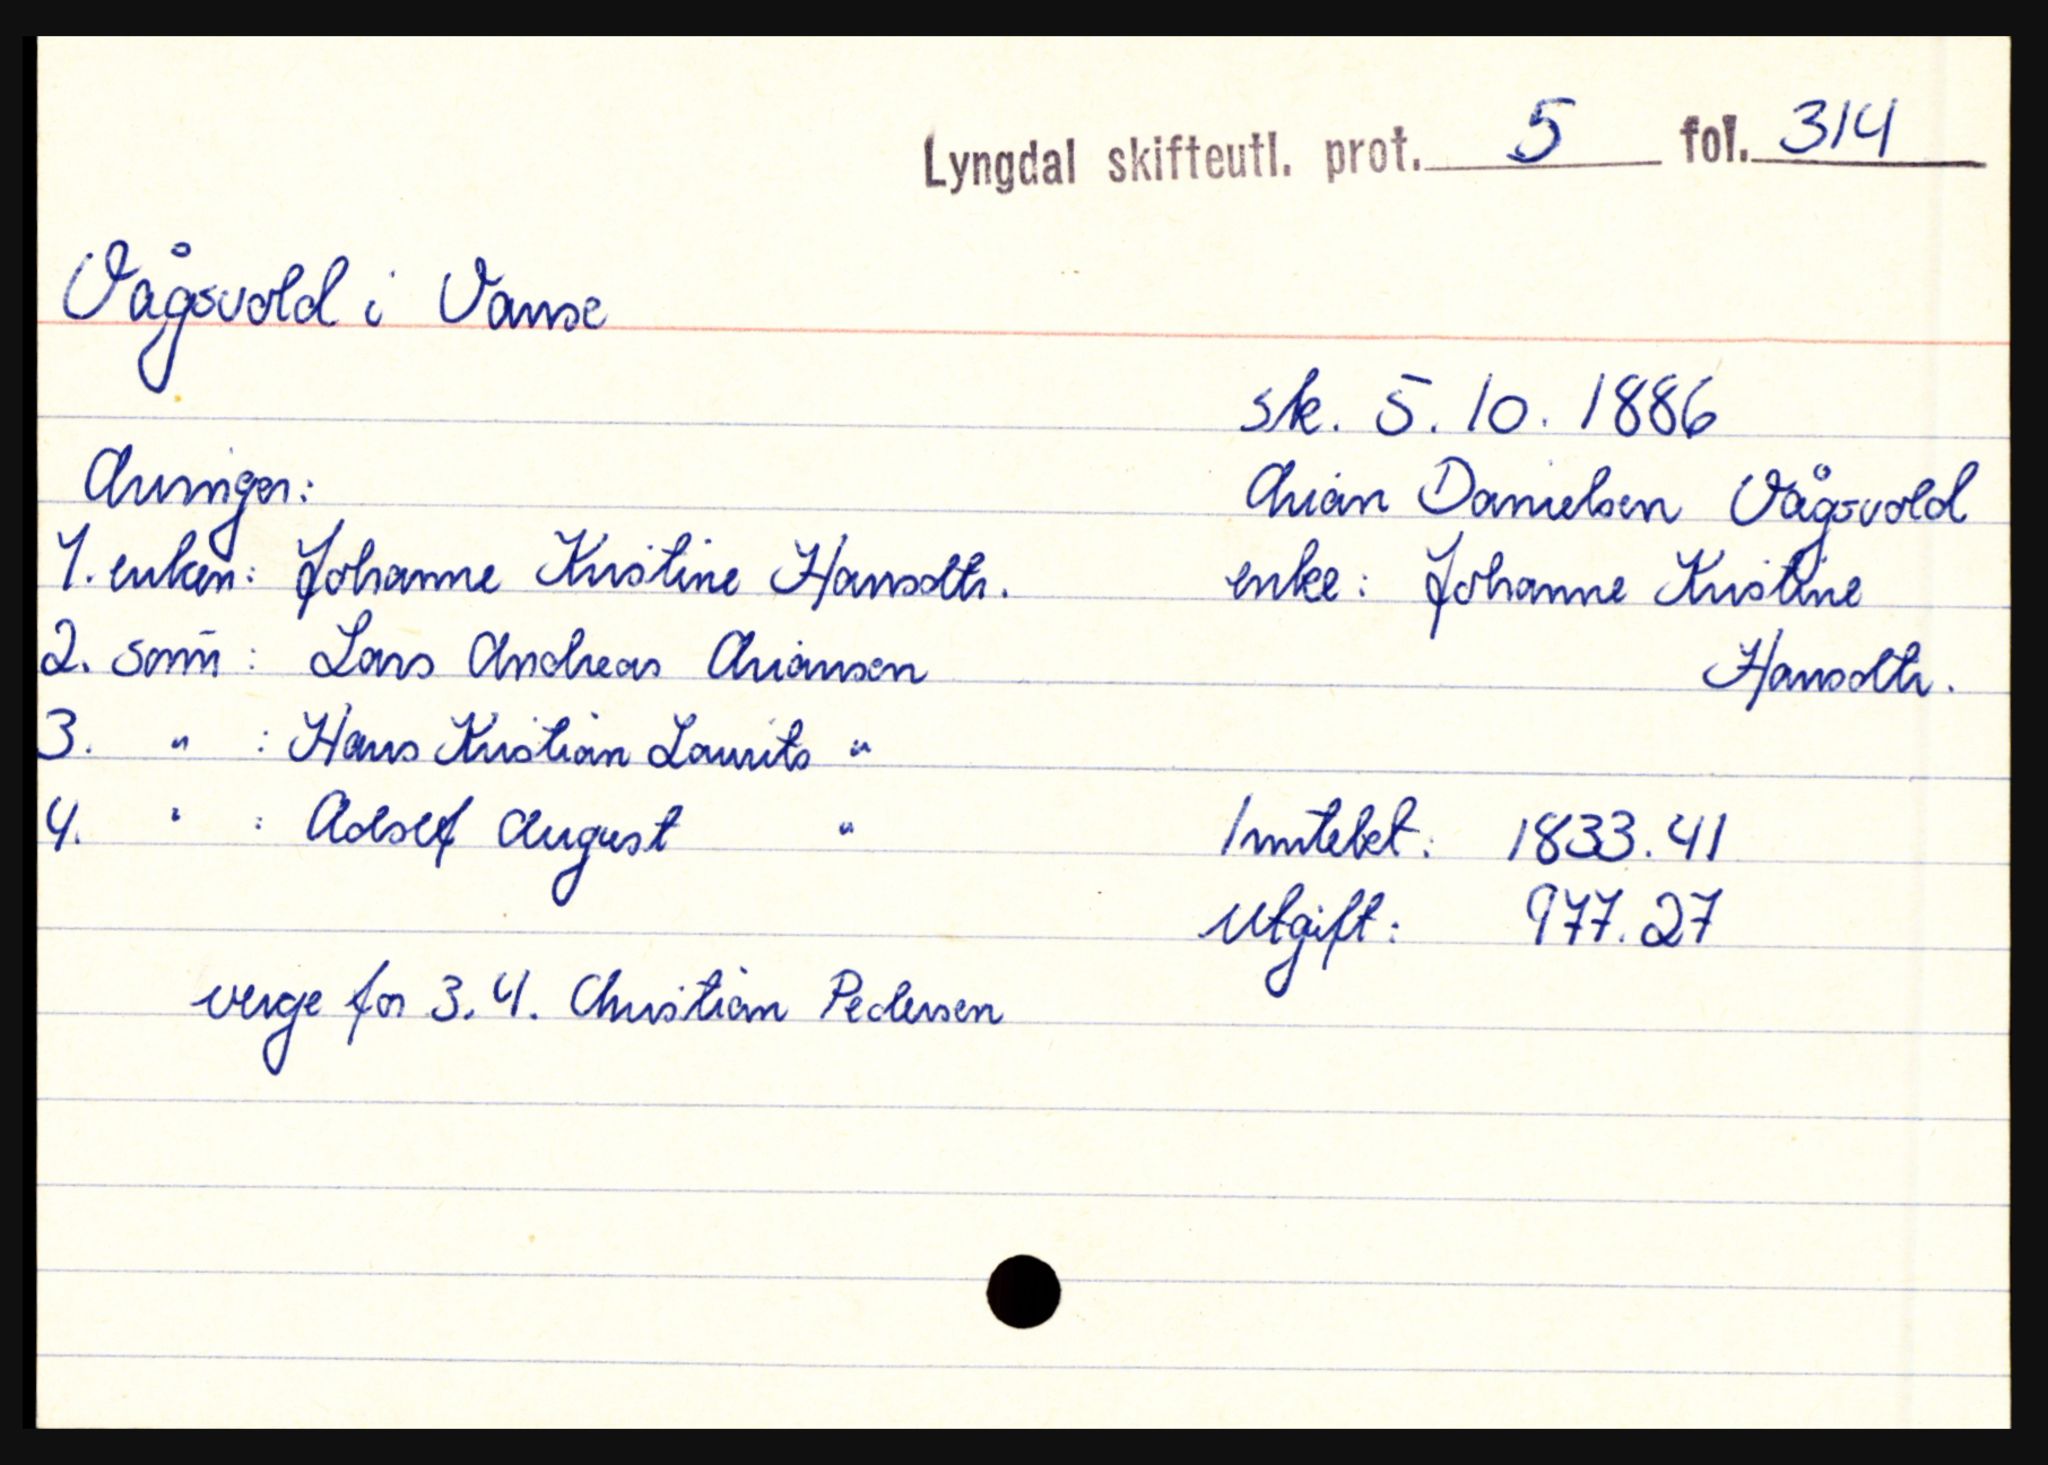 Lyngdal skifteutl. prot. 5 fol. 314
Vågsvold i Vanse
sk. 5.10.1886
Arian Danielsen Vågsvold
enke: Johanne Kristine
Hansdtr.
Arvinger:
1. enken: Johanne Kristine Hansdtr.
2. sønn: Lars Andreas Ariansen
3. " : Hans Kristian Laurits "
4. " : Adolf August "
Inntekt: 1833.41
Utgift: 977.27
verge for 3.4. Christian Pedersen